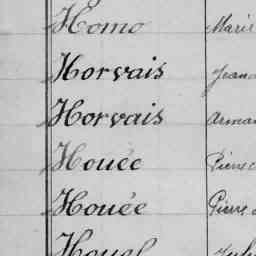 Homo Marie
Horvais Jean
Horvais Arman
Houée Pierre
Houée Pierre
Houel